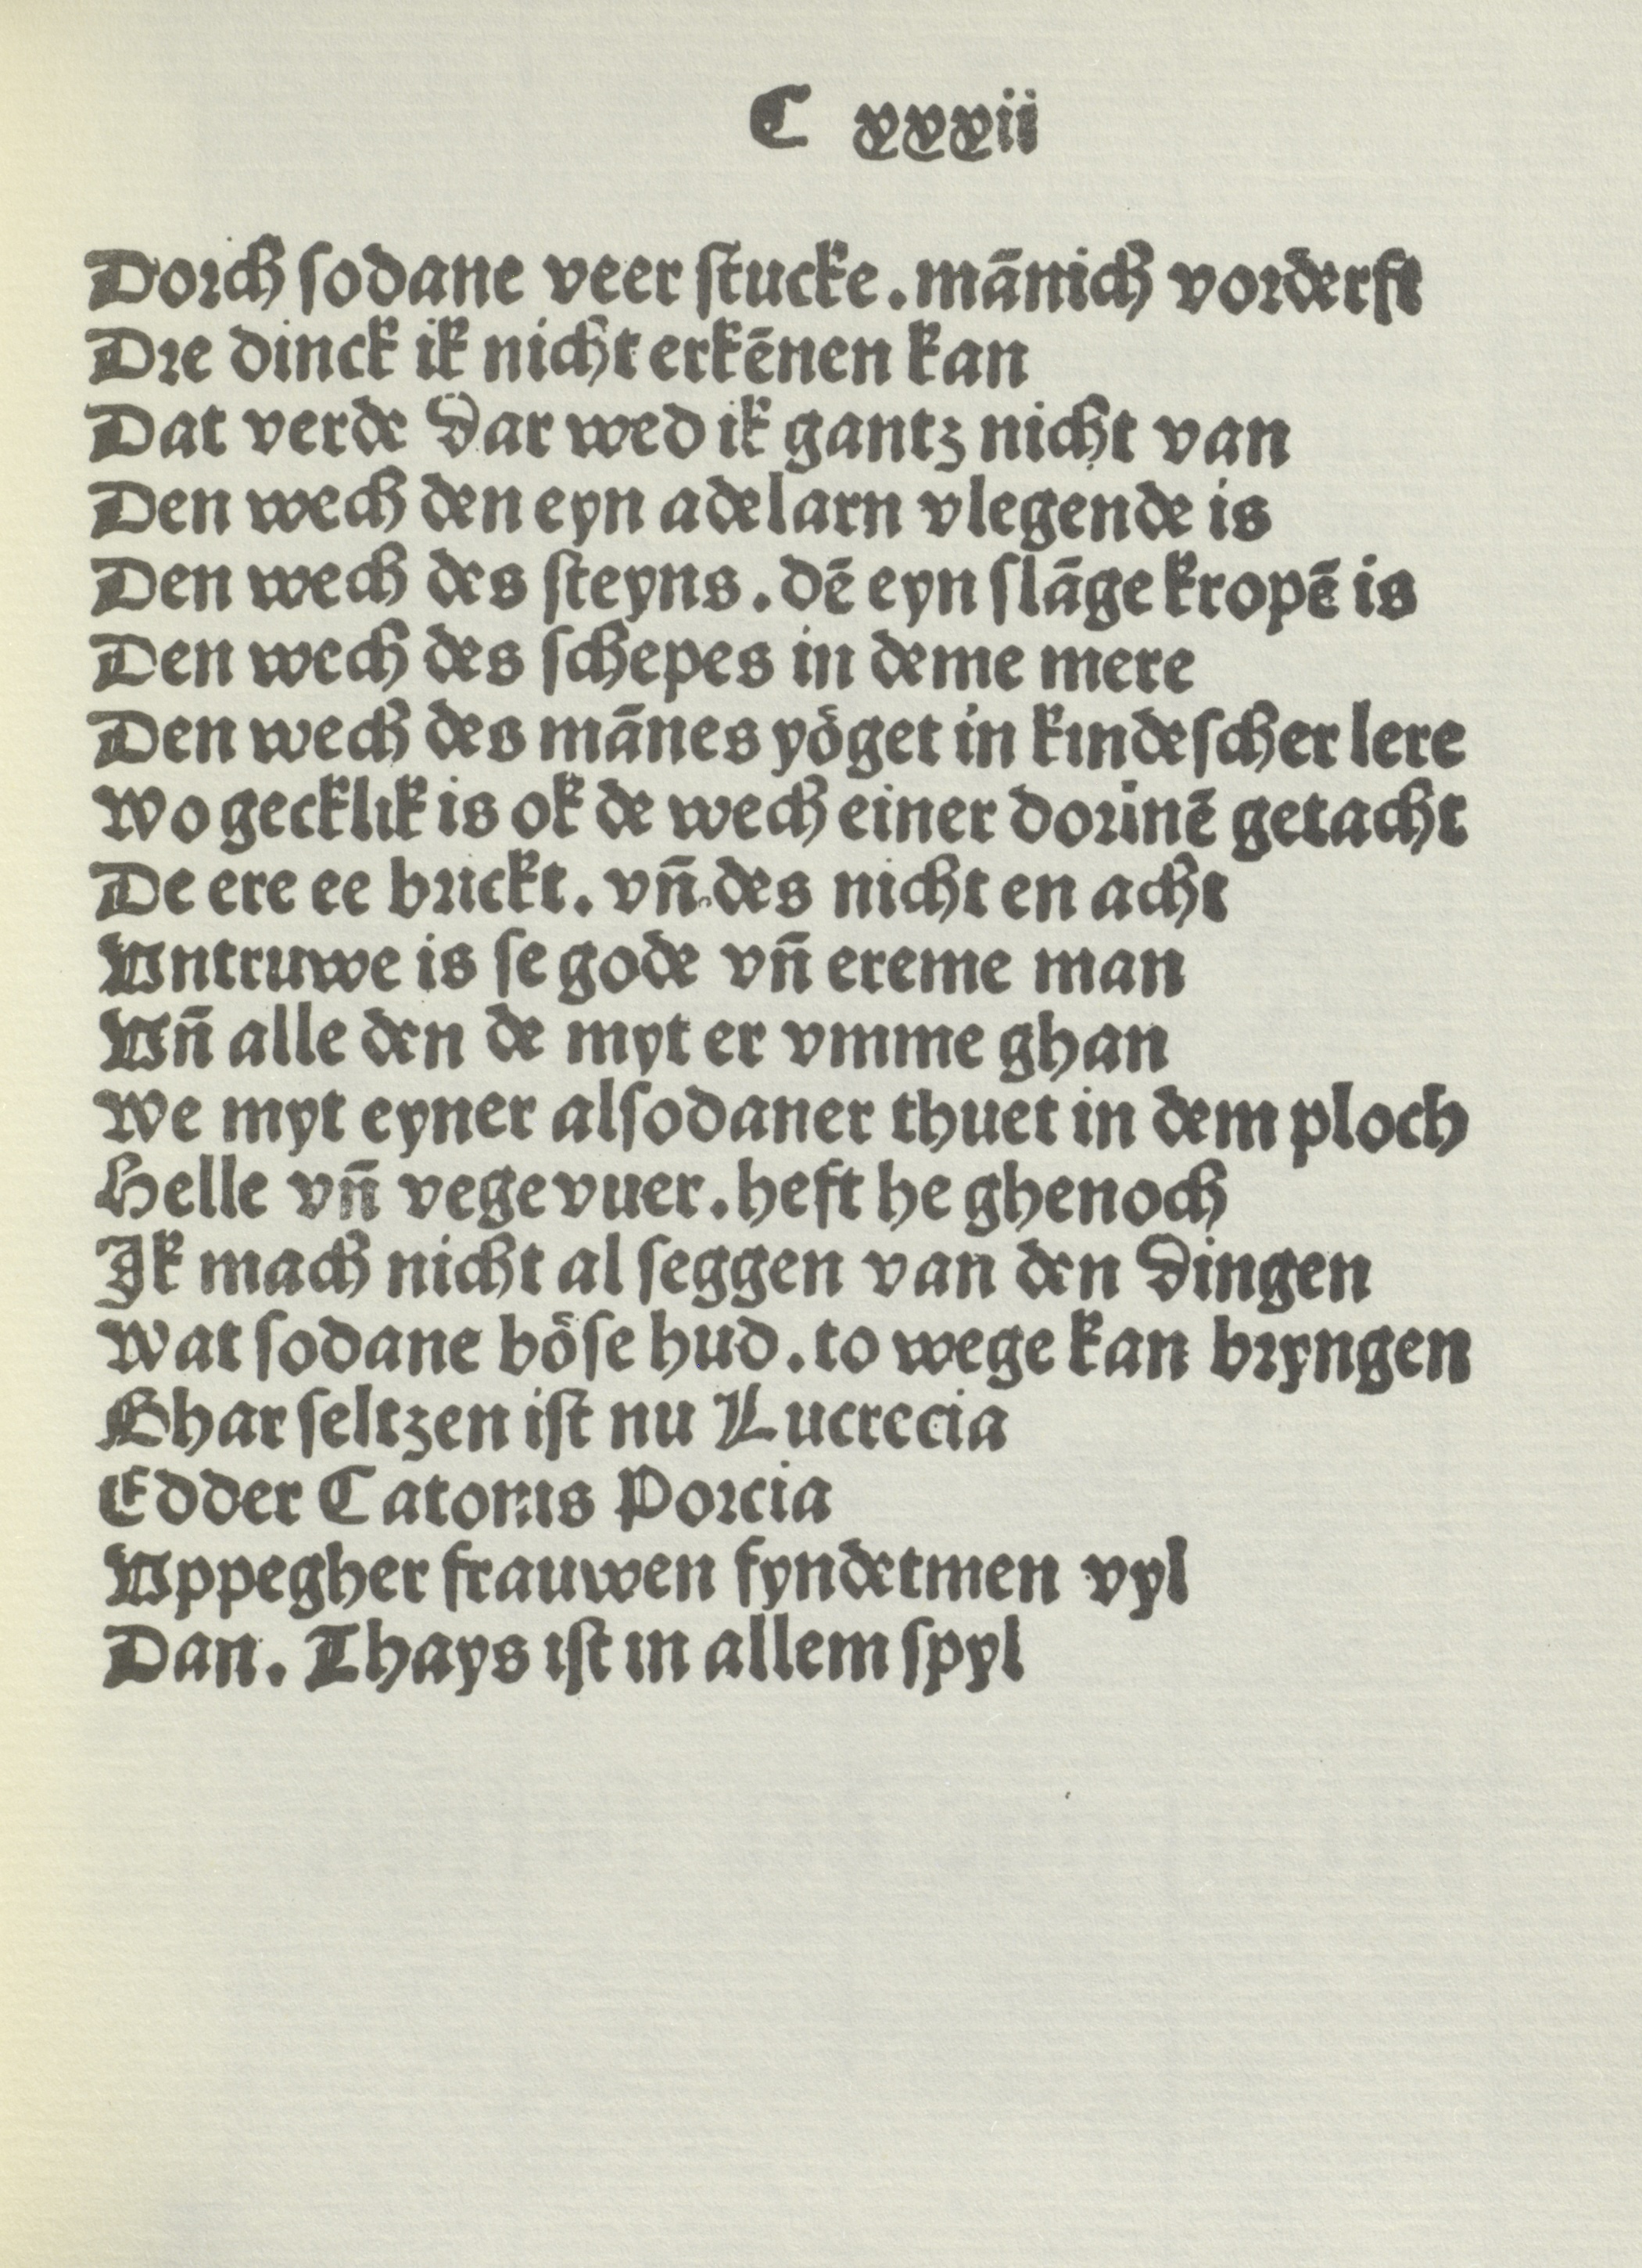 C xxxii
Dorch ſodane veer ſtucke. mānich vorderft
Dre dinck ik nicht erkēnen kan
Dat verde Dar wed ik gantz nicht van
Den wech den eyn adelarn vlegende is
Den wech des ſteyns. dē eyn ſlāge kropē is
Den wech des ſchepes in deme mere
Den wech des mānes yöget in kindeſcher lere
Wo gecklik is ok de wech einer dorinē getacht
De ere ee brickt. vn̄ des nicht en acht
Untruwe is ſe gode vn̄ ereme man
Un̄ alle den de myt er vmme ghan
We myt eyner alſodaner thuet in dem ploch
Helle vn̄ vegevuer. heft he ghenoch
Ik mach nicht al ſeggen van den Dingen
Wat ſodane böſe hud. to wege kan bryngen
Ghar ſeltzen iſt nu Lucrecia
Edder Catonis Porcia
Uppegher frauwen fyndetmen vyl
Dan. Thays iſt in allem ſpyl